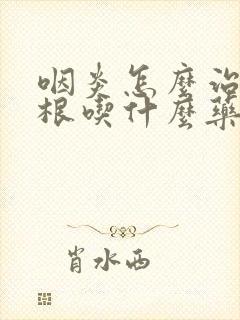 咽炎怎麼治
根喫什麼藥
肖水西